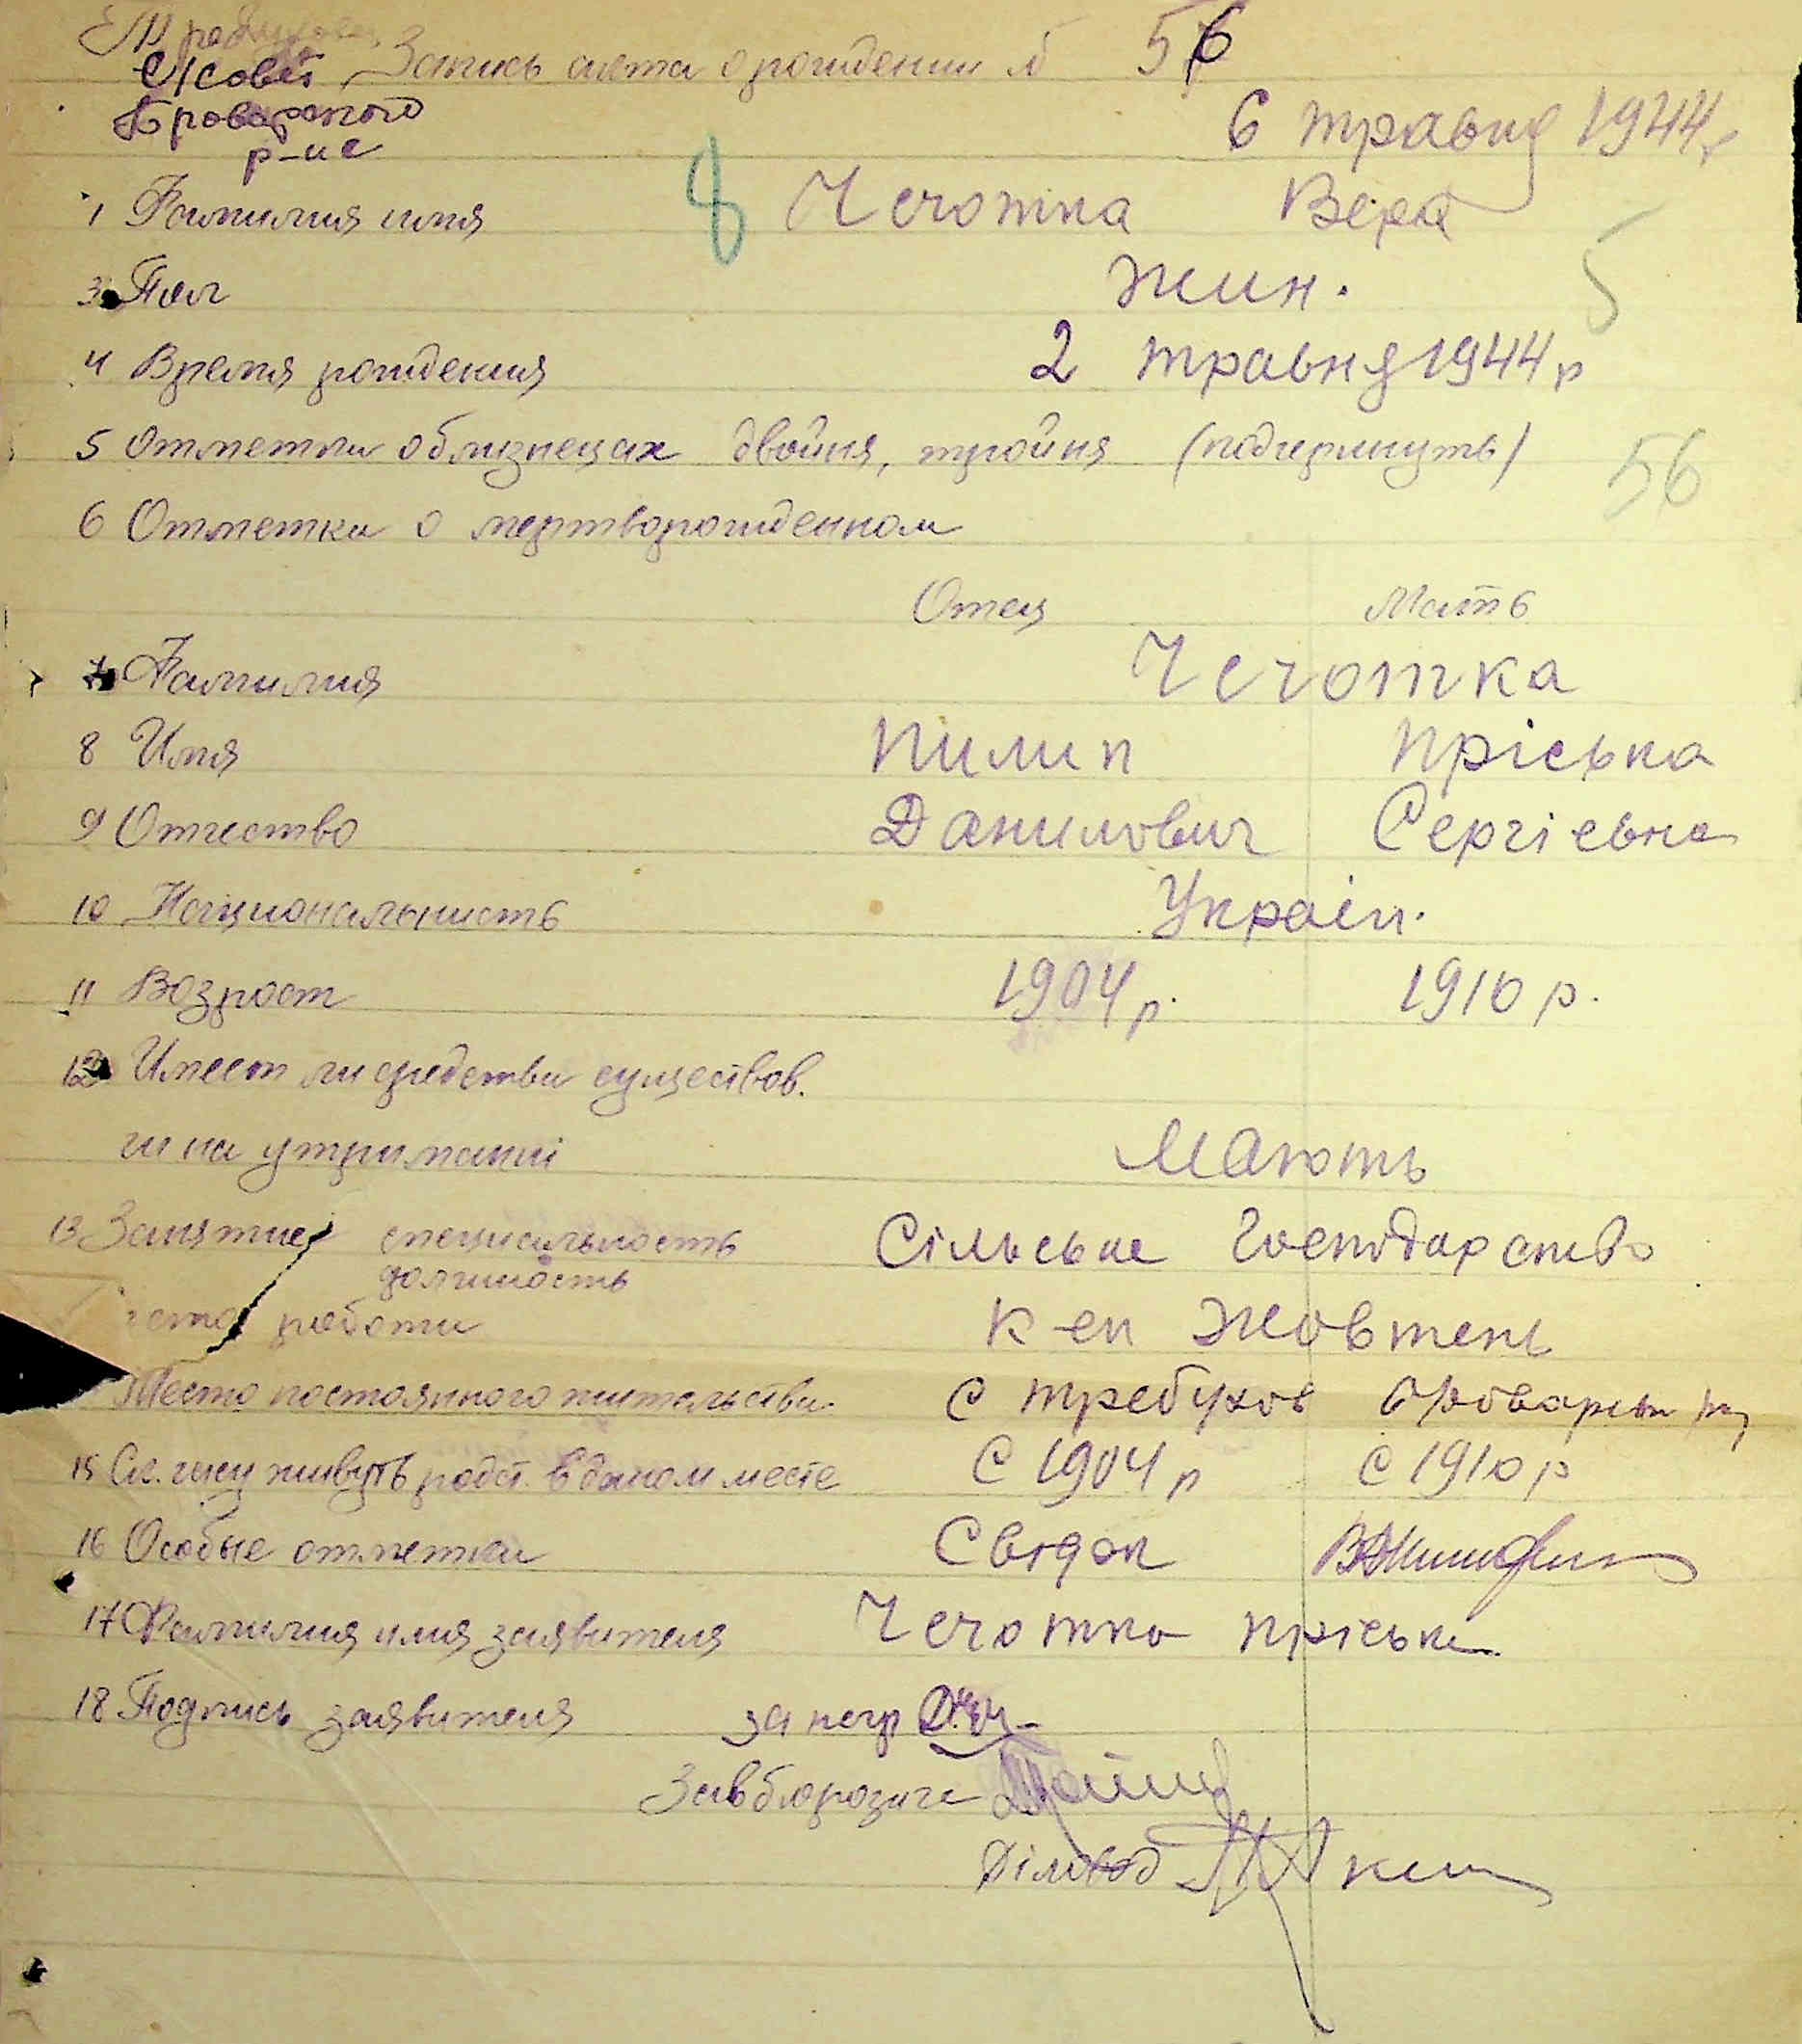 С/совет Запись акта о рождении № 56
Броварского
р-на
6 травня 1944 р
8
1 Фамилия имя Чечотка Вера
5
3 Пол жин.
4 Время рождения 2 травня 1944 р
5 Отметки о близнецах двойня, тройня (подчеркнуть)
56
6 Отметка о мертворожденном
Отец Мать
7 Фамилия Чечотка
8 Имя Пилип Пріська
9 Отчество Данилович Сергієвна
10 Национальность Украін.
11 Возраст 1904 р. 1910 р.
12 Имеет ли средства существов.
чи на утриманні Мають
13 Занятие специальность Сільське Господарство
должность
работи Жовтень
Место постоянного жительства с Требухов
15 Ск. живуть в даном месте С 1904 р С 1910 р
16 Особые отметки Свідок
17 Фамилия имя заявителя Чечотка Пріська
18 Подпись заявителя за негр
Завбюрозагс
Діловод